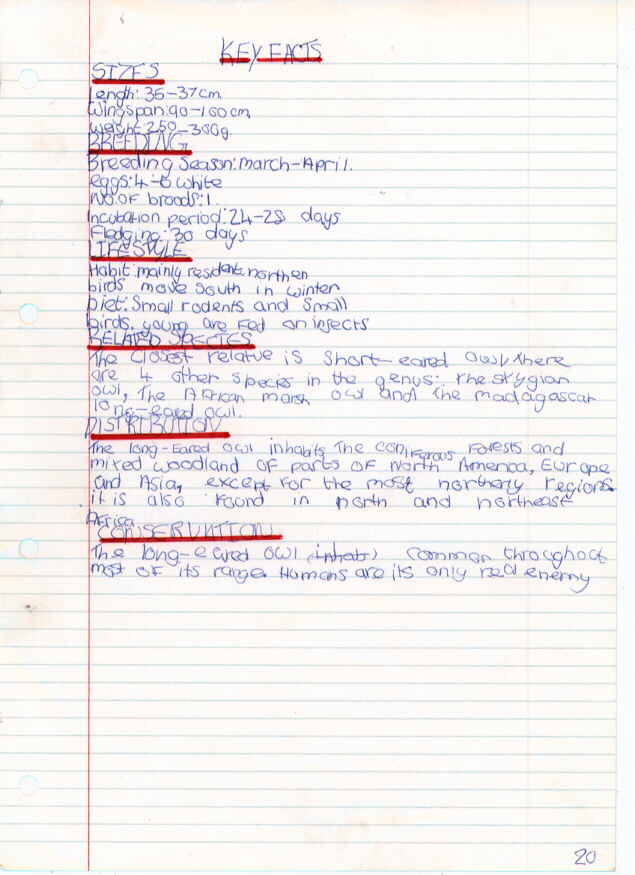 KEY FACTS
SIZES
Length: 35-37cm
Wingspan: 90-100cm
Weight: 250-300g
BREEDING
Breeding Season: March-April.
eggs: 4-6 white
No. of broods: 1.
Incubation period: 24-28 days
Fledging: 30 days
LIFESTYLE
Habit: mainly resident. northen
birds move south in winter
Diet: Small rodents and small
birds. young are Fed on insects
RELATED SPECIES
The closest relative is short-eared owl, there
are 4 other species in the genus: the stygian
owl, The African marsh owl and the madagascar
long-eared owl.
DISTRIBUTION
The long-Eared owl inhabits The coniferous Forests and
mixed woodland of parts of North America, Europe
and Asia, except for the most northerly regions.
it is also found in north and northeast
Africa
CONSERVATION
The long-eared owl inhabits common throughout
most of its range. Humans are its only real enemy
20